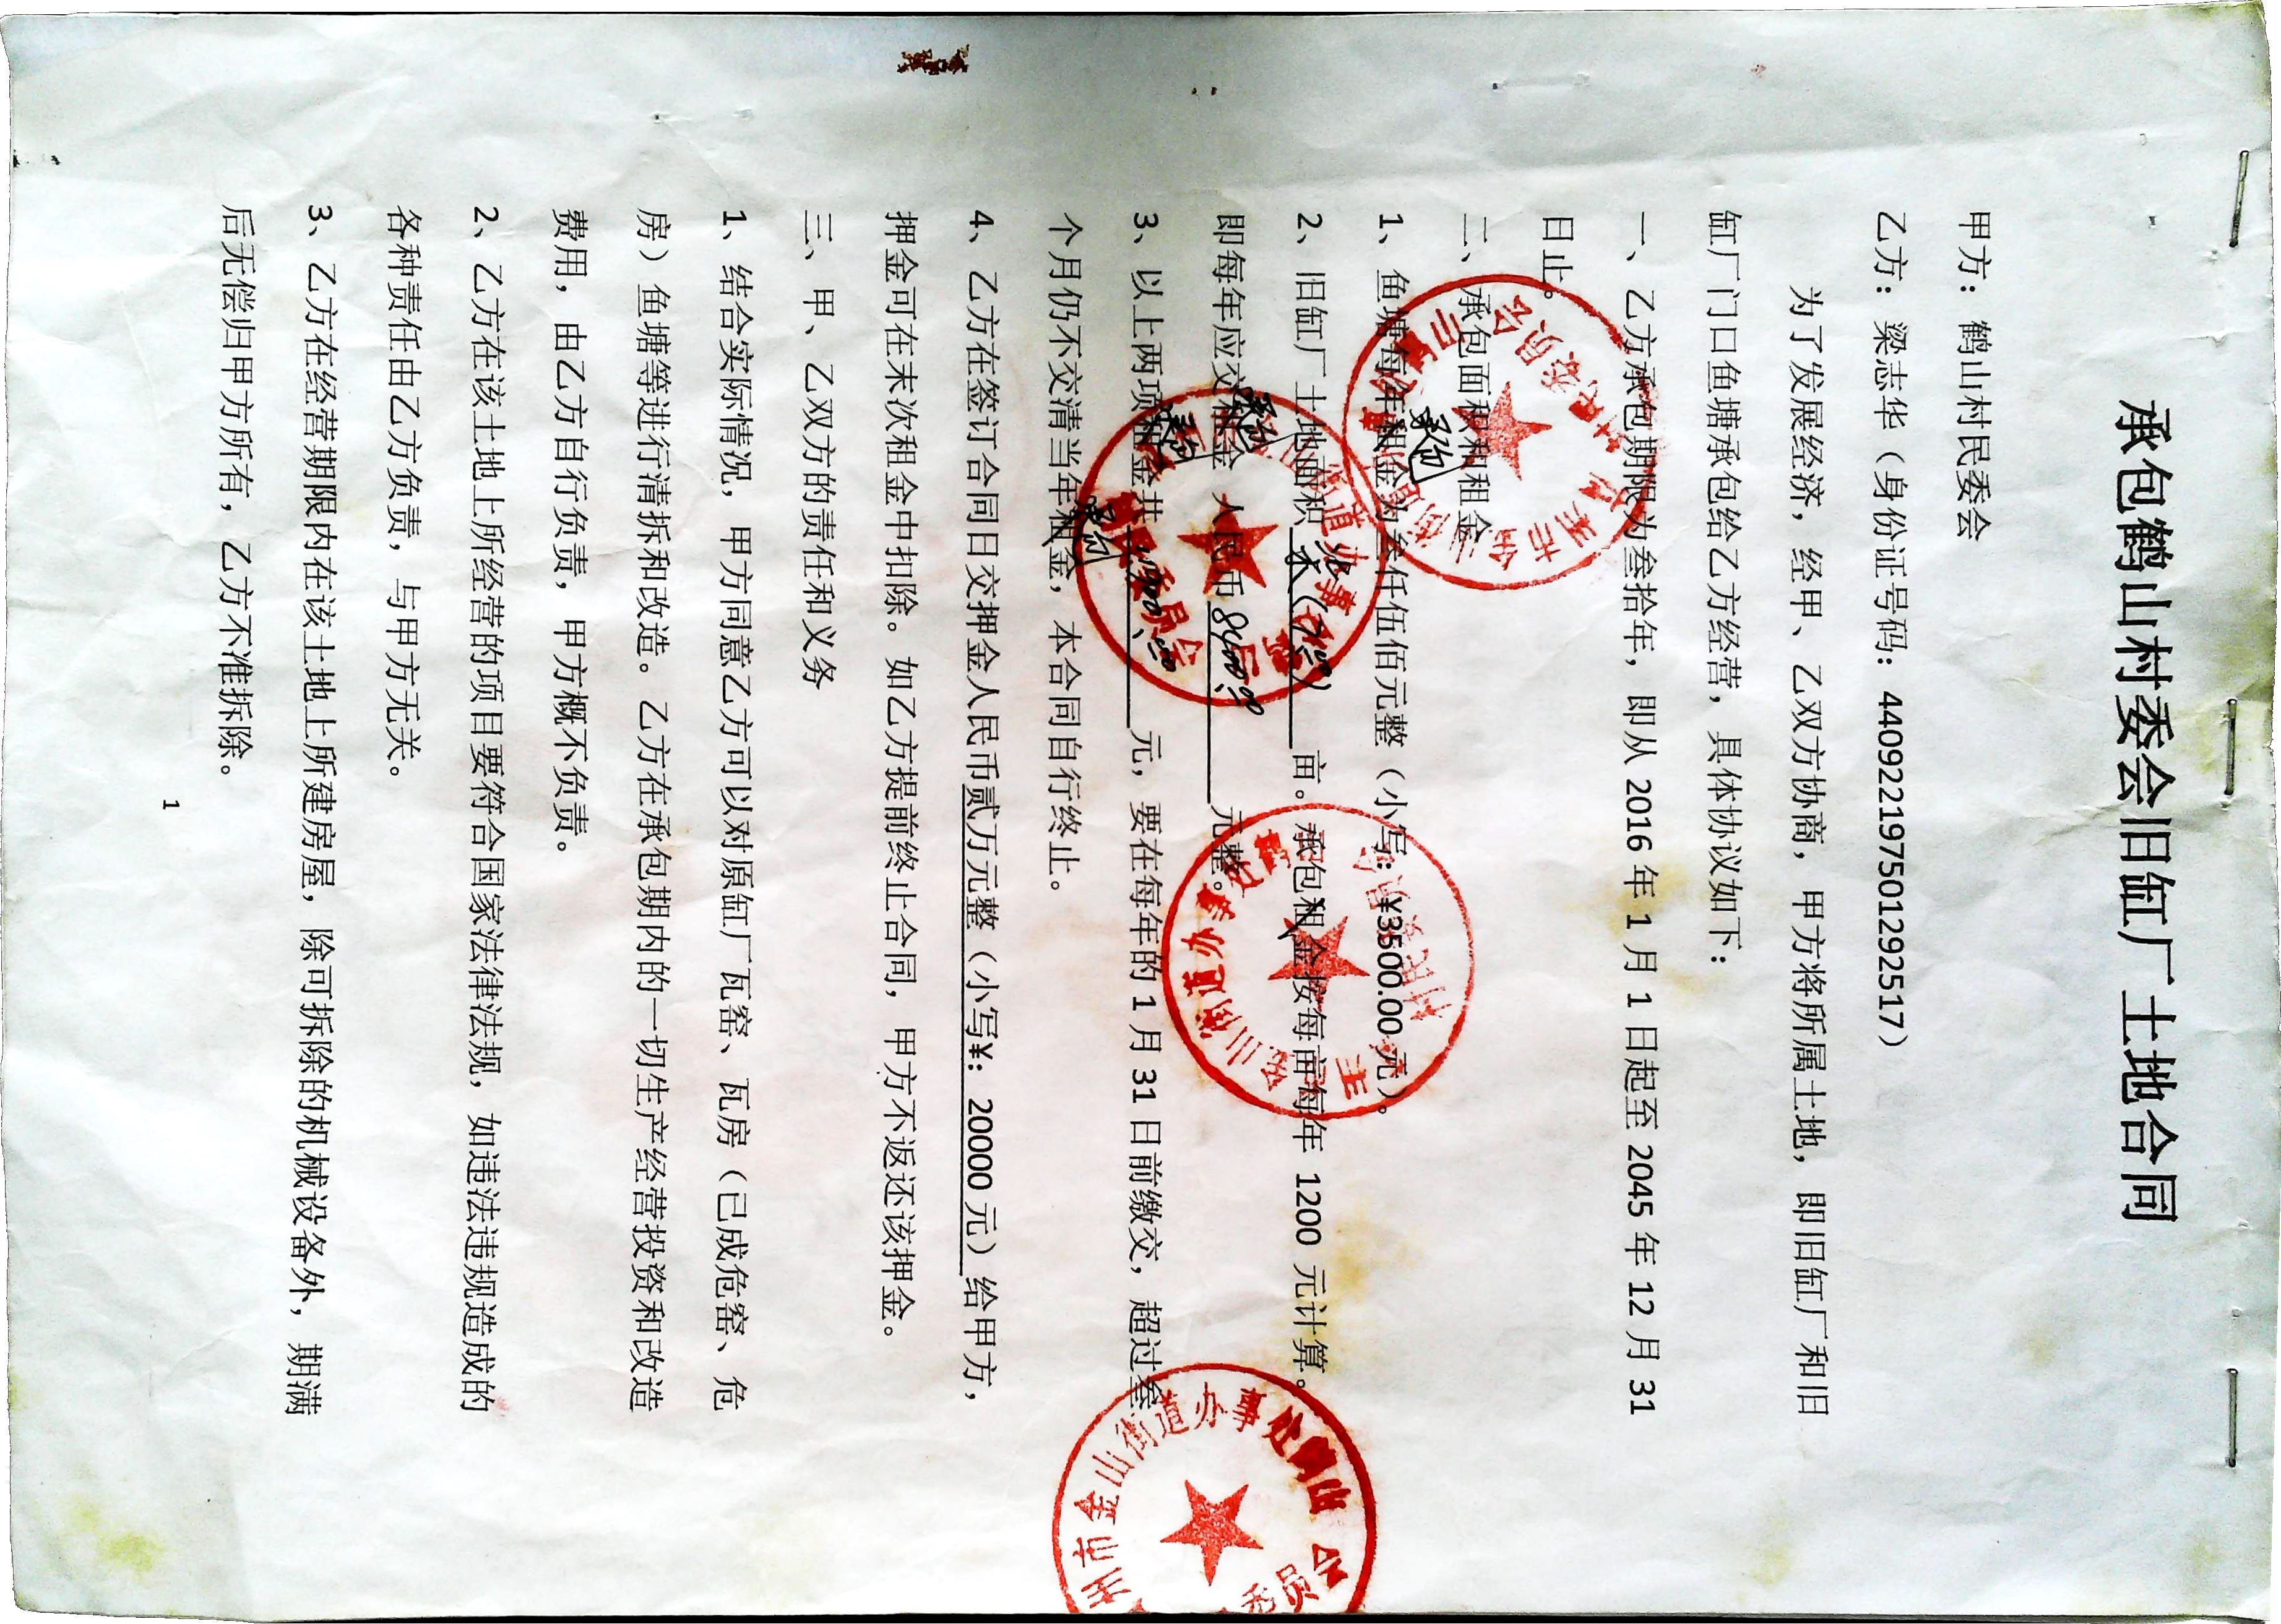 承包鹤山村委会旧缸厂土地合同
甲方：鹤山村民委会
乙方：梁志华（身份证号码：440922197501292517）
为了发展经济，经甲、乙双方协商，甲方将所属土地，即旧缸厂和旧
缸厂门口鱼塘承包给乙方经营，具体协议如下：
一、乙方承包期限为叁拾年，即从 2016 年 1 月 1 日起至 2045 年 12 月 31
日止。
二、承包面积和租金
1、鱼塘每年租金为叁仟伍佰元整（小写：¥3500.00 元）。
承包
2、旧缸厂土地面积 亩。承包租金按每亩每年 1200 元计算。
承包
即每年应交租金 人民币 8400.00 元整。
承包
3、以上两项租金共 元，要在每年的 1 月 31 日前缴交，超过叁
承包
个月仍不交清当年租金，本合同自行终止。
4、乙方在签订合同日交押金人民币贰万元整（小写¥：20000 元）给甲方，
押金可在末次租金中扣除。如乙方提前终止合同，甲方不返还该押金。
三、甲、乙双方的责任和义务
1、结合实际情况，甲方同意乙方可以对原缸厂瓦窑、瓦房（已成危窑、危
房）鱼塘等进行清拆和改造。乙方在承包期内的一切生产经营投资和改造
费用，由乙方自行负责，甲方概不负责。
2、乙方在该土地上所经营的项目要符合国家法律法规，如违法违规造成的
各种责任由乙方负责，与甲方无关。
3、乙方在经营期限内在该土地上所建房屋，除可拆除的机械设备外，期满
后无偿归甲方所有，乙方不准拆除。
1
州市金山街道办事处鹤山
委员会